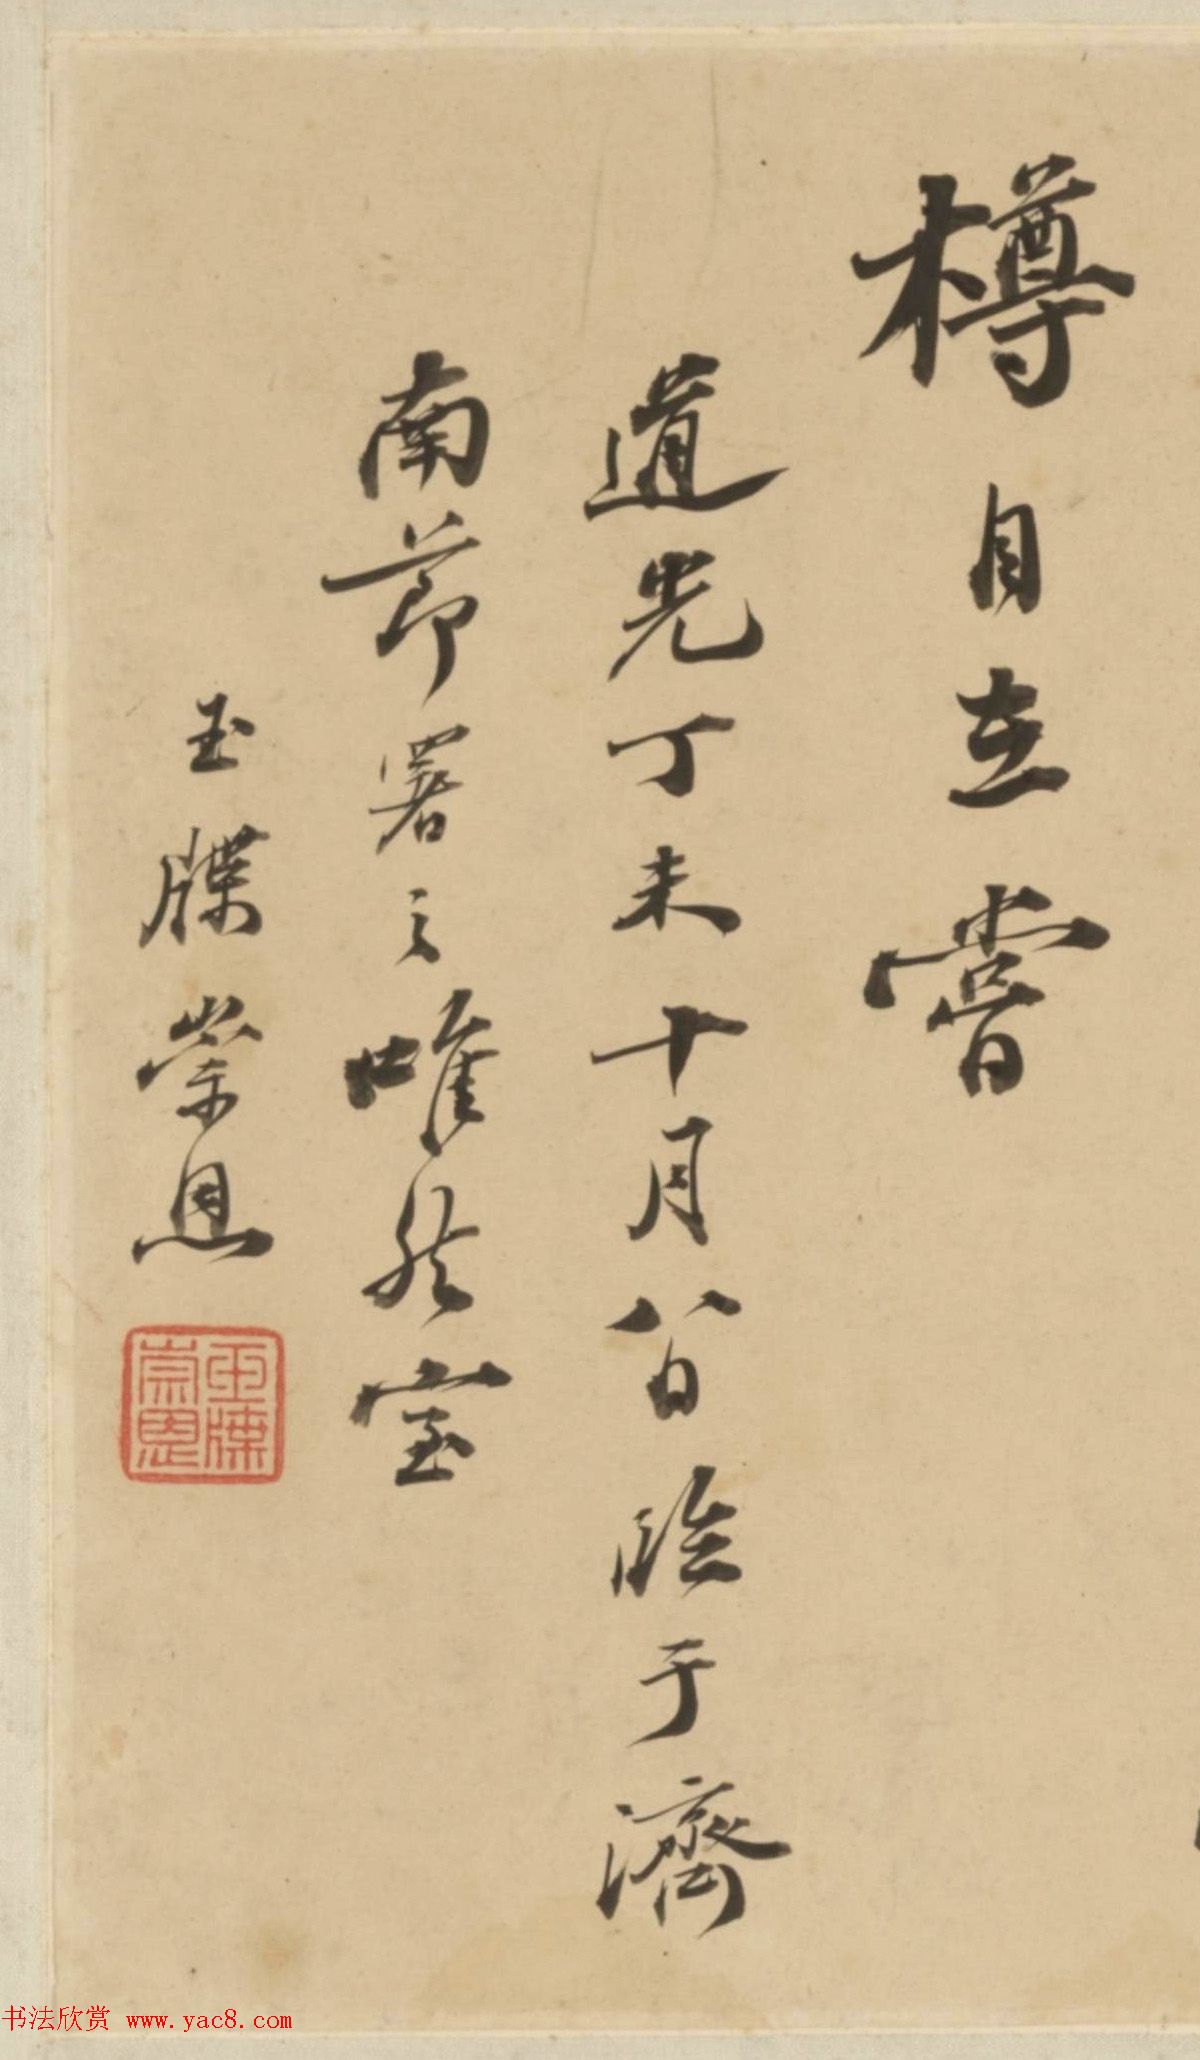 樽自立嘗
道光丁未十月八日臨于濟
南節署之唯然室
玉牒崇恩
玉牒崇恩
书法欣赏 www.yac8.com